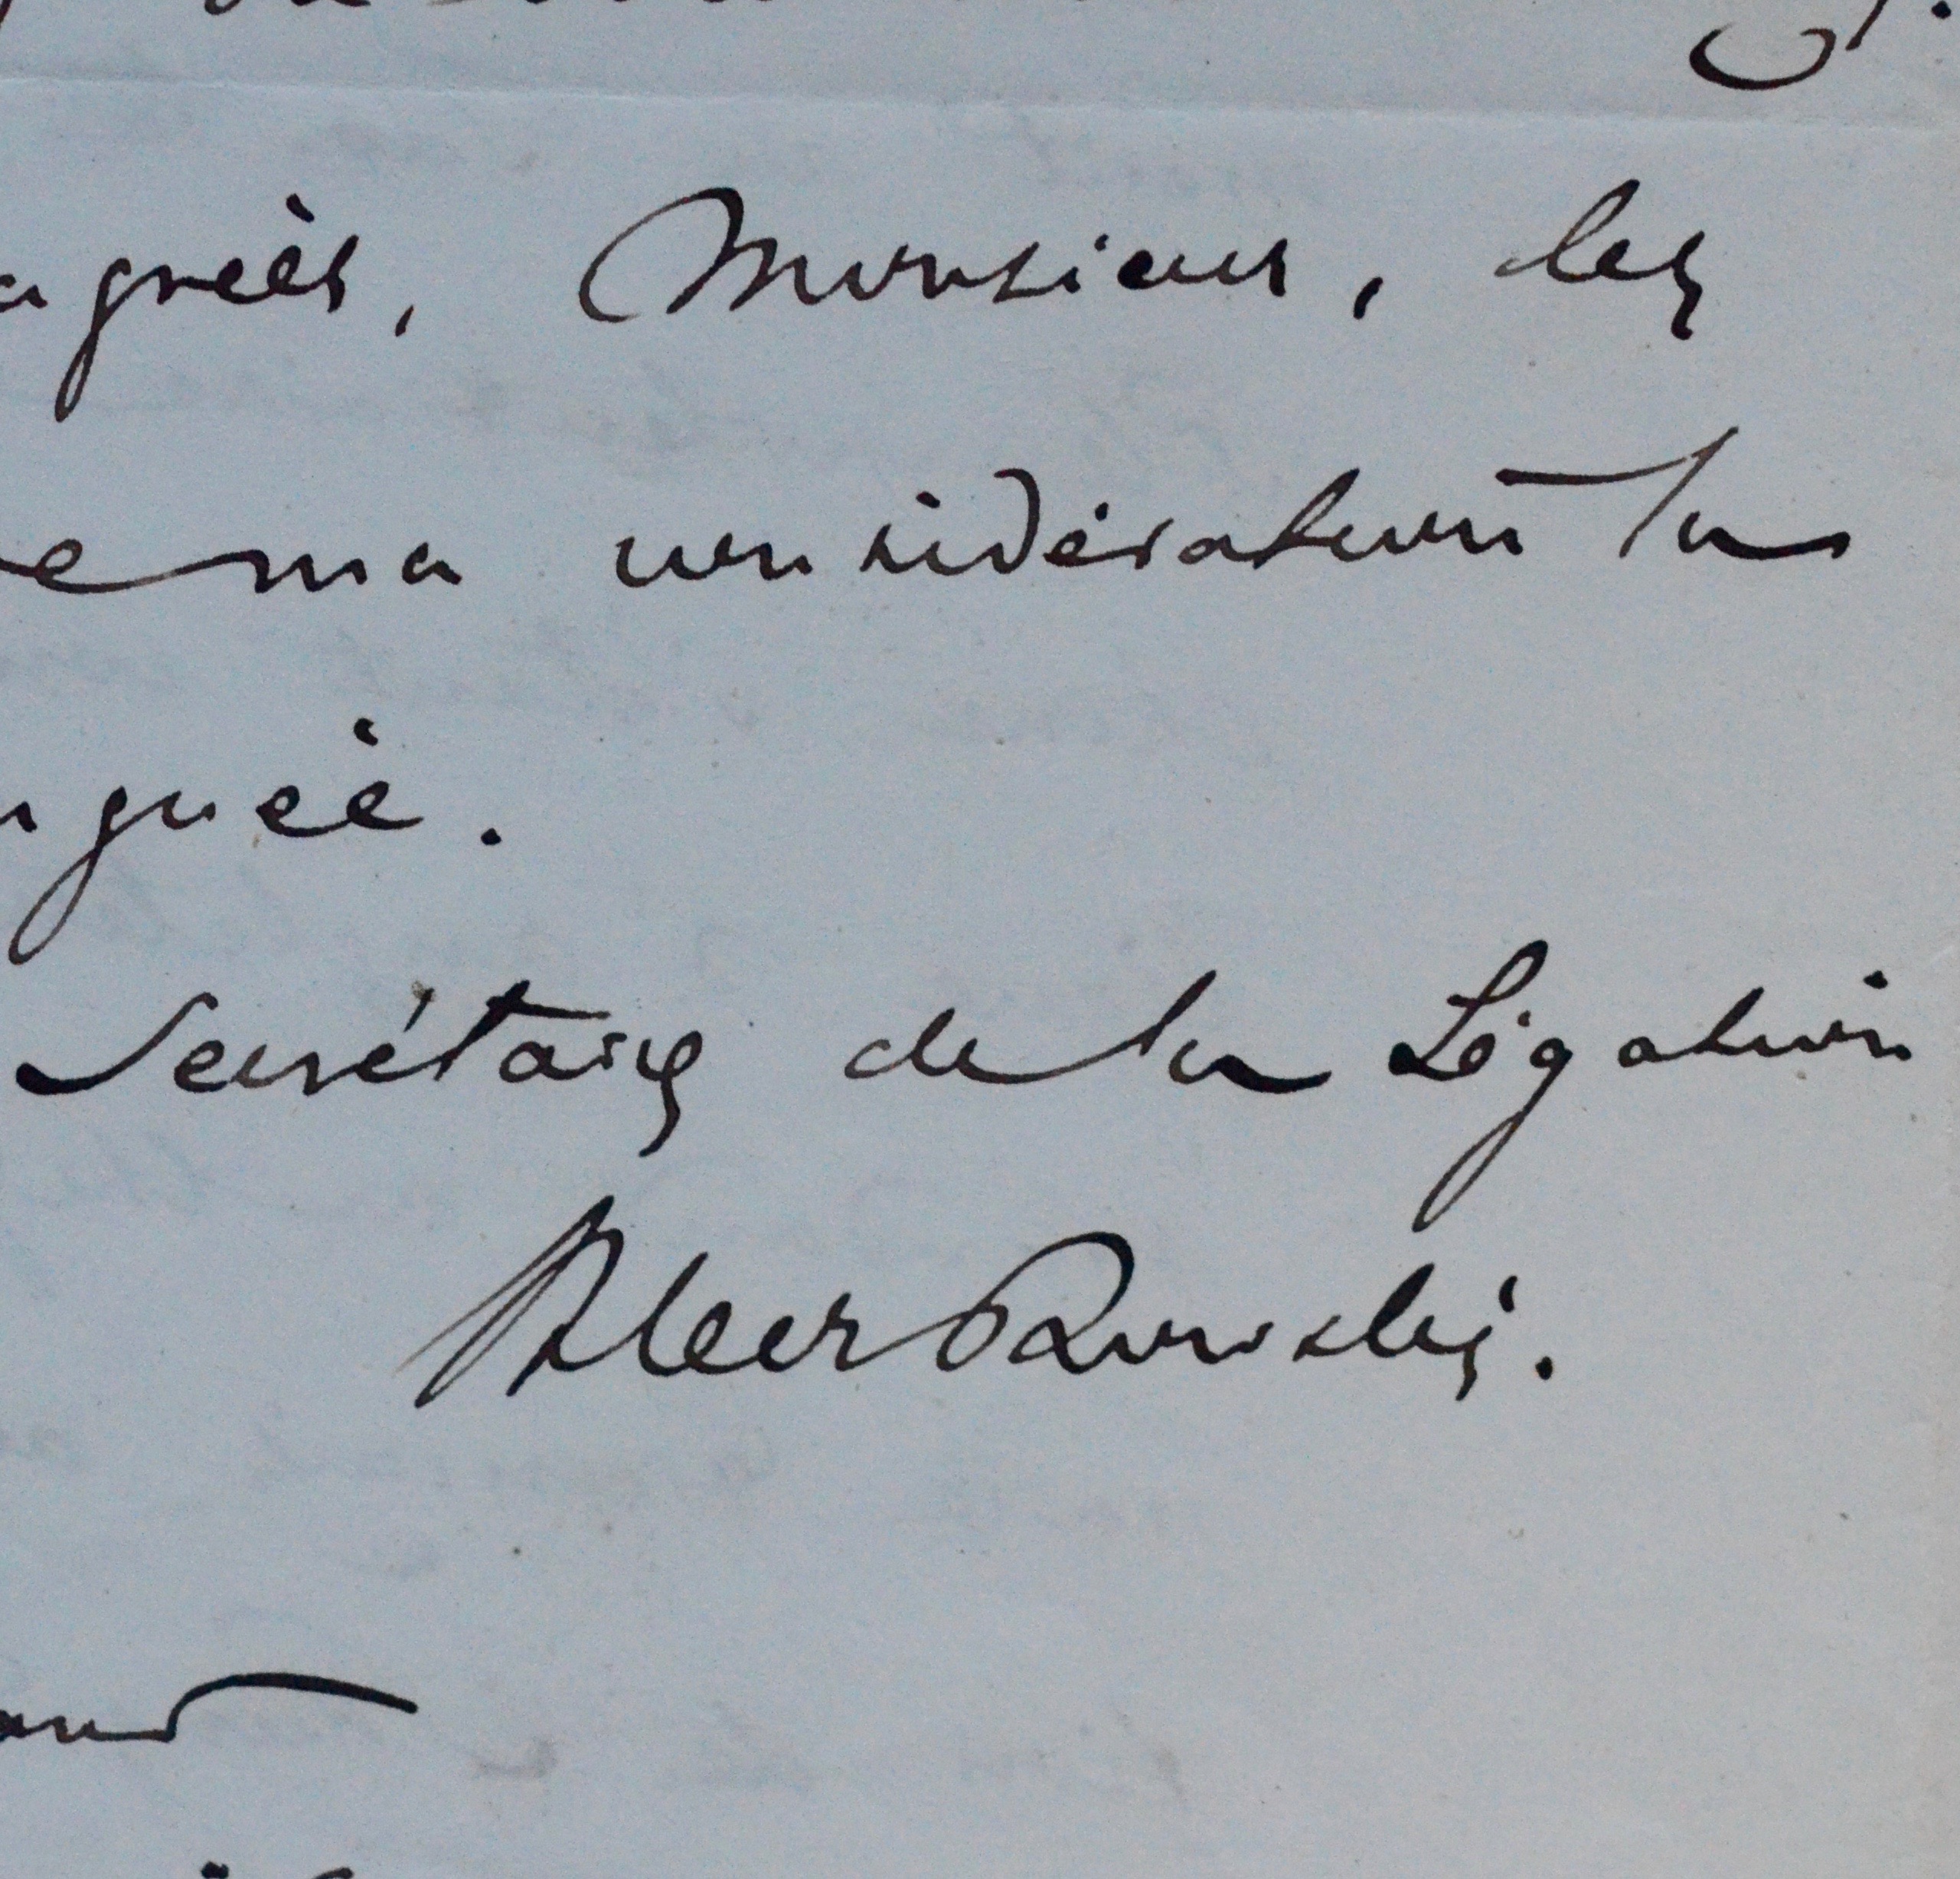 agréer, Monsieur, les
ma considération la
guée.
Secrétaire de la Légation